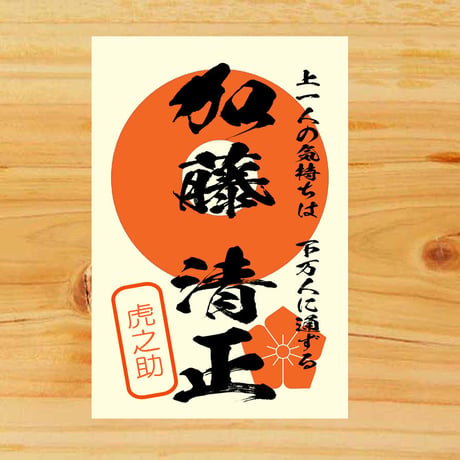 上一人の気持ちは 下万人に通ずる
加藤清正
虎之助